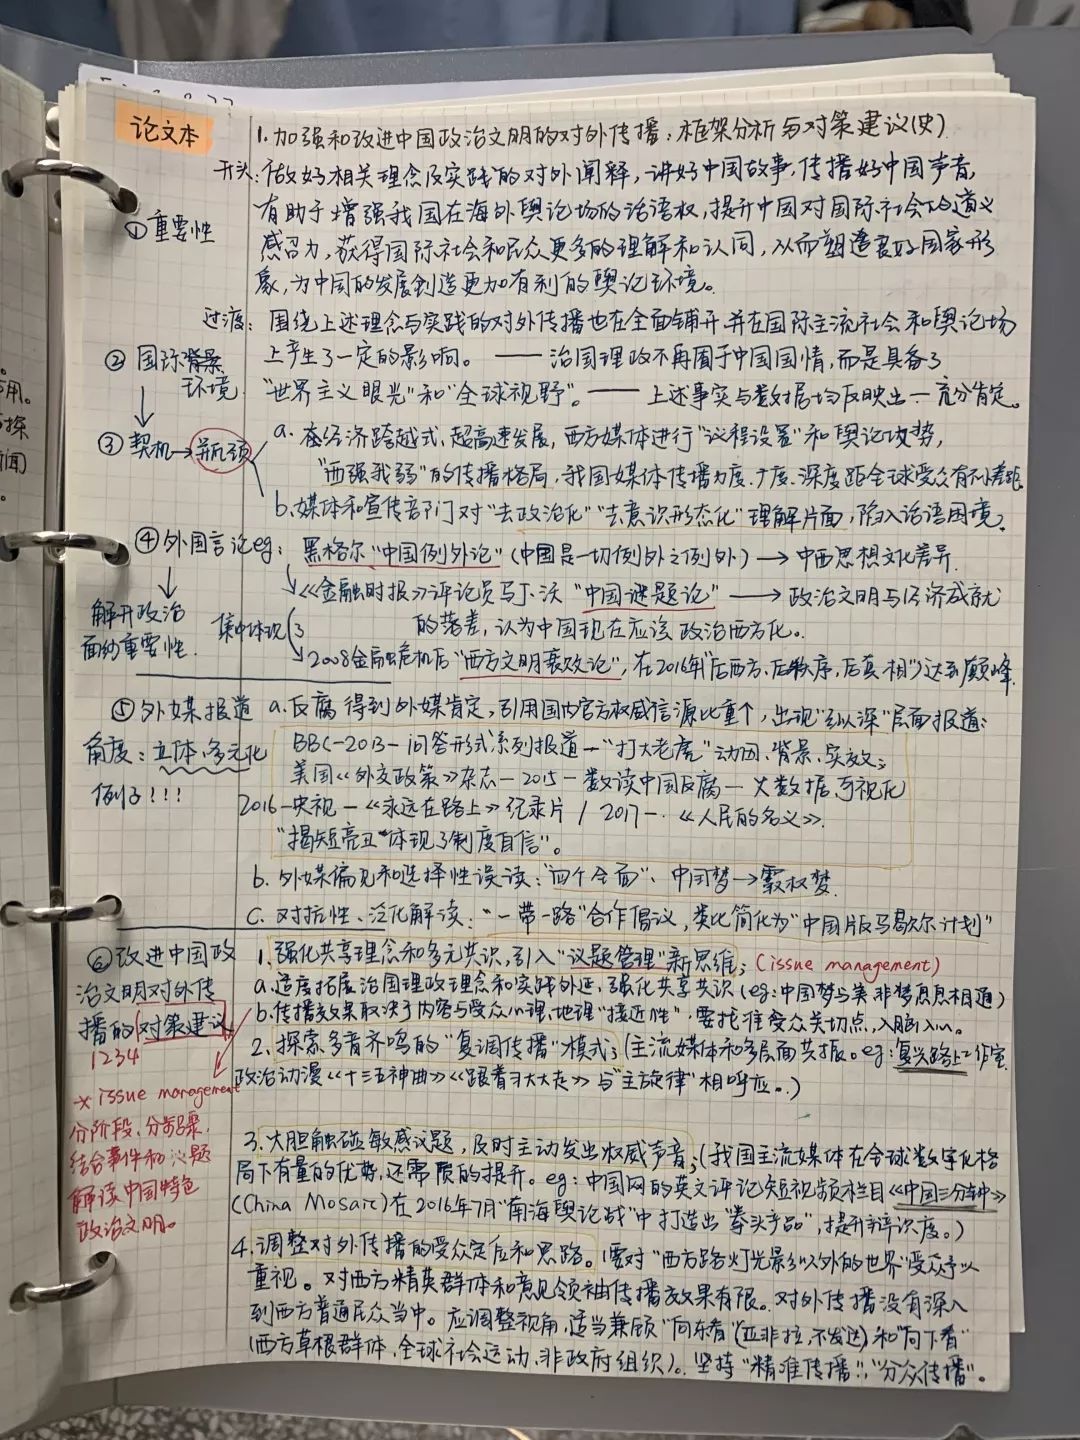 论文本
1. 加强和改进中国政治文明的对外传播：框架分析与对策建议(史)
开头：做好相关理念及实践的对外阐释，讲好中国故事，传播好中国声音，
① 重要性
有助于增强我国在海外舆论场的话语权，提升中国对国际社会的道义
感召力，获得国际社会和民众更多的理解和认同，从而塑造良好国家形
象，为中国的发展创造更加有利的舆论环境。
过渡：围绕上述理念与实践的对外传播也在全面铺开，并在国际主流社会和舆论场
上产生了一定的影响。—— 治国理政不再囿于中国国情，而是具备了
② 国际背景
环境
"世界主义眼光"和"全球视野"。—— 上述事实与数据均反映出一充分肯定。
③ 契机→并瓶颈
a. 在经济跨越式、超高速发展，西方媒体进行"议程设置"和舆论攻势，
"西强我弱"的传播格局，我国媒体传播力度、广度、深度距全球受众有不小差距
b. 媒体和宣传部门对"去政治化""去意识形态化"理解片面，陷入话语困境。
④ 外国言论eg：黑格尔"中国例外论"(中国是一切例外之例外)→中西思想文化差异.
《金融时报》评论员马丁·沃"中国谜题论"→政治文明与经济成就
解开政治
面纱重要性.
集中体现
的落差，认为中国现在应该政治西方化。
2008金融危机后"西方文明衰败论"，在2016年("后西方、后秩序，后真相")达到巅峰.
⑤ 外媒报道
a. 反腐得到外媒肯定，引用国内官方权威信源比重个，出现"纵深"层面报道：
角度：立体、多元化
例子！！！
BBC-2013-问答形式系列报道一"打大老虎"动因、背景、实效；
美国《外交政策》杂志-2015-数读中国反腐-大数据可视化
2016-央视-《永远在路上》纪录片 / 2017-《人民的名义》.
"揭短亮丑"体现了制度自信"。
b. 外媒偏见和选择性误读："四个全面"、中国梦→霸权梦.
c. 对抗性、泛化解读："一带一路"合作倡议，类比简化为"中国版马歇尔计划"
⑥ 改进中国政
治文明对外传
播的对策建议
1234
1. 强化共享理念和多元共识，引入"议题管理"新思维；(issue management)
a. 适度拓展治国理政理念和实践外延，强化共享共识(eg：中国梦与美非梦息息相通)
b. 传播效果取决于内容与受众心理、地理"接近性"，要找准受众关切点，入脑入心。
2. 探索多音齐鸣的"复调传播"模式；(主流媒体和多层面共振。eg：复兴路上工作室
政治动漫《十三五神曲》《跟着习大大走》与"主旋律"相呼应。)
* issue management
分阶段、分步骤，
结合事件和议题
解读中国特色
政治文明。
3. 大胆触碰敏感议题，及时主动发出权威声音；(我国主流媒体在全球数字化格
局下有量的优势，还需质的提升。eg：中国网的英文评论短视频栏目《中国三分钟》
(China Mosaic)在2016年7月"南海舆论战"中打造出"拳头产品"，提升辨识度。)
4. 调整对外传播的受众定位和思路。(要对"西方路灯光影以外的世界"受众予以
重视。对西方精英群体和意见领袖传播效果有限。对外传播没有深入
到西方普通民众当中。应调整视角，适当兼顾"向东看"(亚非拉，不发达)和"向下看"
(西方草根群体，全球社会运动、非政府组织)。坚持"精准传播"！，"分众传播"。